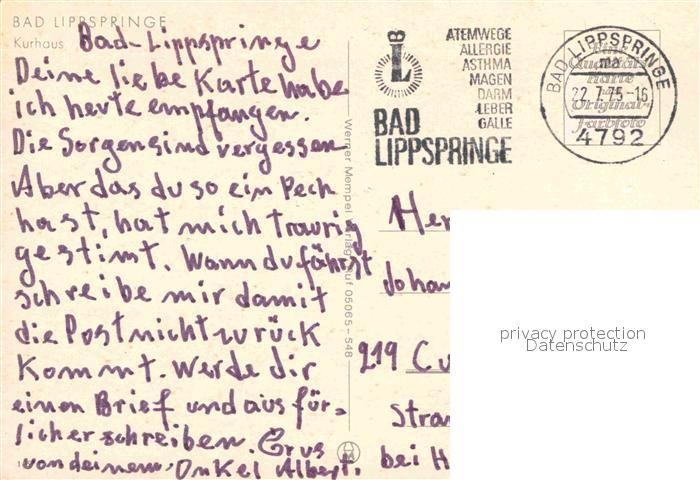 BAD LIPPSPRINGE
Kurhaus
Bad-Lippspringe
Deine liebe Karte habe
ich heute empfangen.
Die Sorgen sind vergessen
Aber das du so ein Pech
hast, hat mich traurig
gestimt. Wann du fährst
schreibe mir damit
die Post nicht zurück
kommt. Werde dir
einen Brief und ausfür=
licher schreiben. Grus
von deinem, Onkel Albert.
Werner Mempel Verlag
05065-548
L
B
ATEMWEGE
ALLERGIE
ASTHMA
MAGEN
DARM
LEBER
GALLE
BAD
LIPPSPRINGE
BAD LIPPSPRINGE
ma
22.7.75-16
4792
Eine
Qualitäts-
karte
Original-
farbfoto
Her
Johan
219 Cu
Stra
bei H
privacy protection
Datenschutz